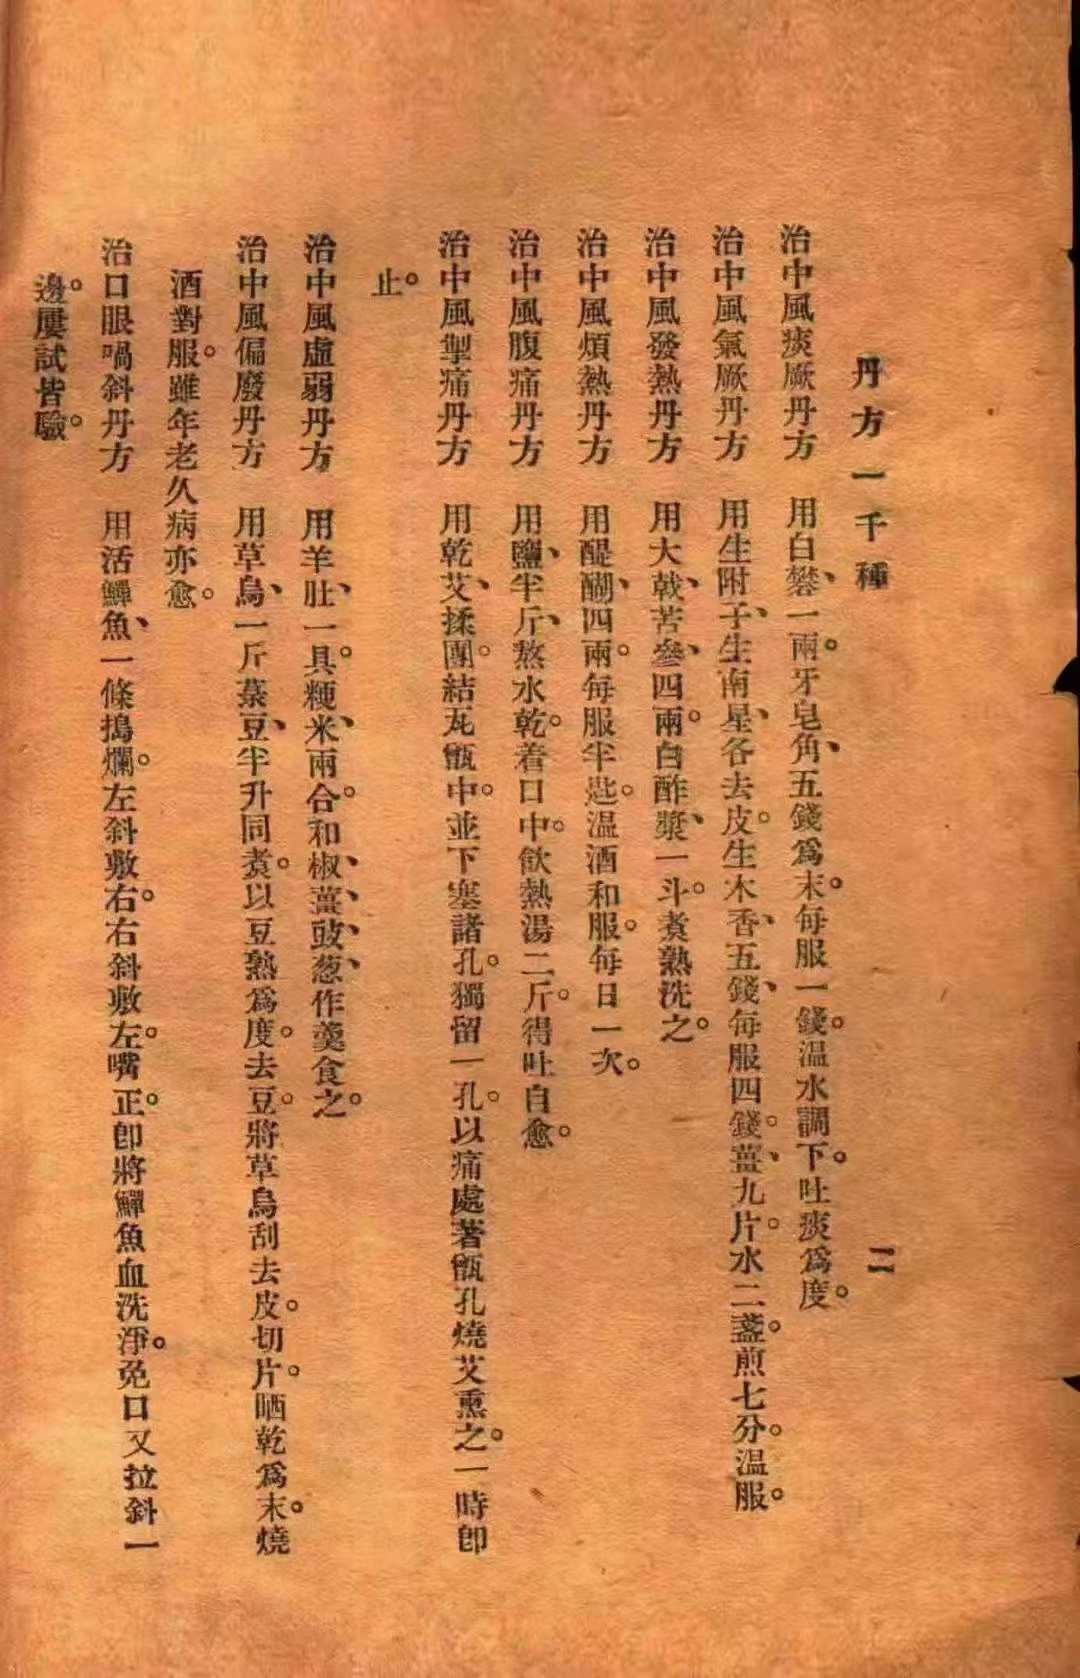 丹方一千種 二
治中風痰厥丹方 用白礬、一兩。牙皂角、五錢爲末。每服一錢。温水調下。吐痰爲度。
治中風氣厥丹方 用生附子、生南星、各去皮。生木香、五錢、每服四錢。薑、九片。水二盞。煎七分。温服。
治中風發熱丹方 用大戟、苦參、四兩。白酢漿、一斗。煑熟洗之。
治中風煩熱丹方 用醍醐、四兩。每服半匙。温酒和服。每日一次。
治中風腹痛丹方 用鹽、半斤、熬水乾。着口中。飲熱湯二斤。得吐自愈。
治中風掣痛丹方 用乾艾、揉團。結瓦甑中。並下塞諸孔。獨留一孔。以痛處著甑孔燒艾熏之。一時卽
止。
治中風虛弱丹方 用羊肚、一具。粳米、兩合。和椒、薑、豉、葱、作羹食之。
治中風偏廢丹方 用草烏、一斤菉豆、半升同煑。以豆熟爲度。去豆。將草烏刮去皮。切片。晒乾爲末。燒
酒對服。雖年老久病亦愈。
治口眼喎斜丹方 用活鱓魚、一條搗爛。左斜敷右。右斜敷左。嘴正。卽將鱓魚血洗淨。免口又拉斜一
邊。屢試皆驗。